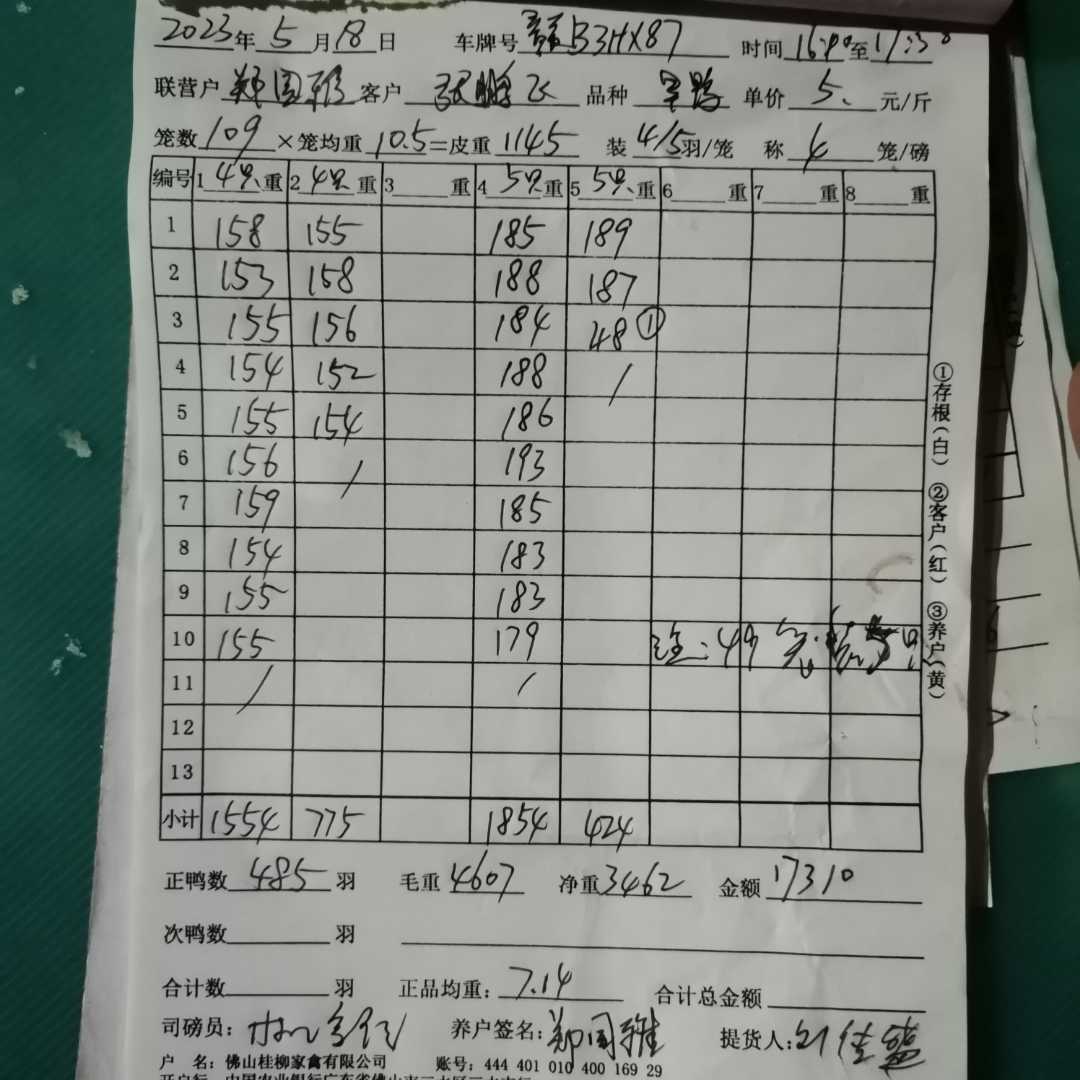 2023年 5 月 18 日 车牌号 赣B3HX87 时间 16:40 至 17:30
联营户 郑国雅 客户 张鹏飞 品种 单价 5. 元/斤
笼数 109 ×笼均重 10.5 =皮重 1145 装 4/5 羽/笼 称 4 笼/磅
编号 1 4只 重 2 4只 重 3 重 4 5只 重 5 5只 重 6 重 7 重 8 重
1 158 155 185 189
2 153 158 188 187
3 155 156 184 48 ①
4 154 152 188 /
5 155 154 186
6 156 / 193
7 159 185
8 154 183
9 155 183
10 155 179 注:49
11 / /
12
13
小计 1554 775 1854 424
正鸭数 485 羽 毛重 4607 净重 3462 金额 17310
次鸭数 羽
合计数 羽 正品均重: 7.14 合计总金额
司磅员: 养户签名: 郑国雅 提货人:
户 名: 佛山桂柳家禽有限公司 账号: 444 401 010 400 169 29
开户行 中国农业银行广东省佛山市三水区三水支行
①存根(白) ②客户(红) ③养户(黄)